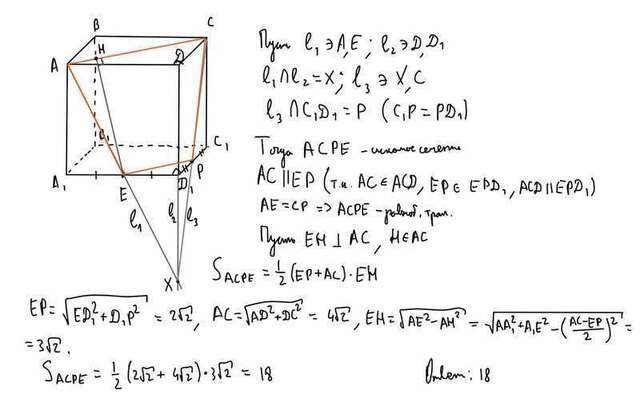 B
C
H
A
D
B₁
C₁
P
A₁
E
D₁
l₁
l₂
l₃
X
Пусть l₁ ∋ A,E ; l₂ ∋ D,D₁
l₁∩l₂ = X ; l₃ ∋ X,C
l₃ ∩ C₁D₁ = P (C₁P = PD₁)
Тогда ACPE – искомое сечение
AC || EP (т.к. AC ∈ ACD, EP ∈ EPD₁, ACD || EPD₁)
AE = CP => ACPE – равноб. трап.
Пусть EH ⊥ AC, H∈AC
S_ACPE = 1/2 (EP+AC)·EH
EP = √(ED₁²+D₁P²) = 2√2, AC = √(AD²+DC²) = 4√2, EH = √(AE²-AH²) = √(AA₁²+A₁E²-((AC-EP)/2)²) =
= 3√2.
S_ACPE = 1/2 (2√2 + 4√2)·3√2 = 18
Ответ: 18